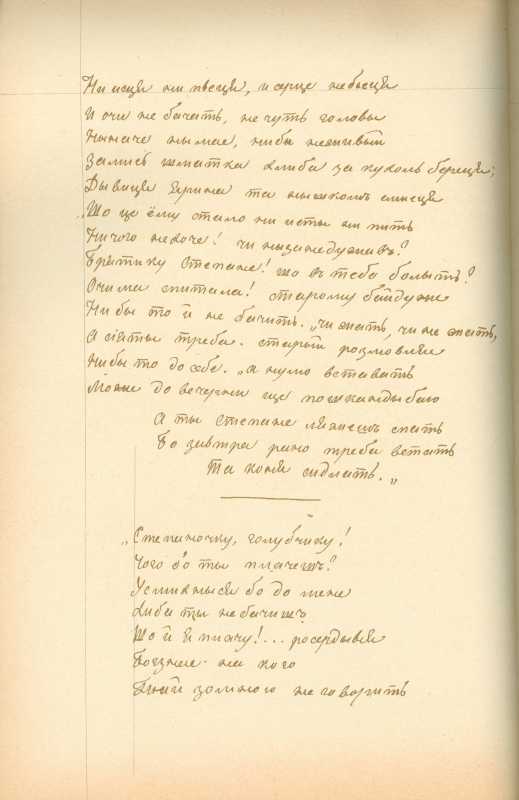 Ни исця ни пьесця, и серце не бьесця
И очи не бачать, не чуть головы
Ныначе нымае, ниби неживый
Замисъ шматка хлиба за кухоль берецця;
Дывицця Ярина та нышкомъ смиєця
„Шо це ёму стало ни исты ни пить
Ничого нехоче! чи нызанедужавъ?
Братику Степане! шо въ тебе болыть?
Очима спитала! старому байдуже
Ни бы то й не бачить. „Чи жать, чи не жать,
А сіяты треба. старый розмовляе
Нибы то до себе. „а нумо вставать
Може до вечерни ще пошкандыбаю
А ты Степане ляжешъ спать
Бо завтра рано треба встать
Та коня сидлать. „
„Степаночку, голубчику!
Чого бо ты плачешъ?
Усмихнысся бо до мене
Хиба ты не бачишъ
Шо й я плачу!... росердывся
Богзнае на кого
Тай зомною не говорить